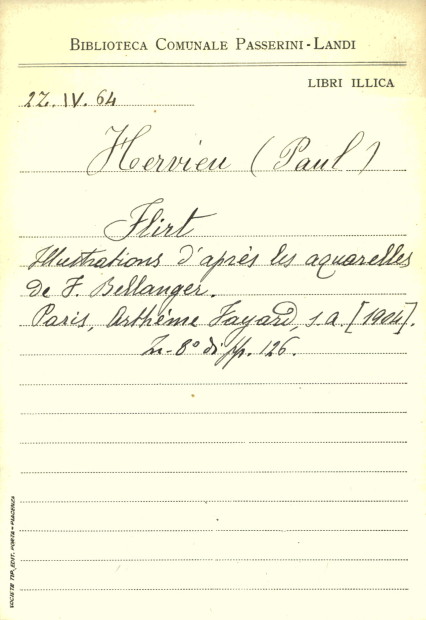 BIBLIOTECA COMUNALE PASSERINI-LANDI
LIBRI ILLICA
2Z. IV. 64
Hervieu (Paul)
Flirt
Illustrations d'après les aquarelles
de F. Bellanger.
Paris, Arthème Fayard, s.a. [1904].
In-8° di pp. 126.
SOCIETÀ TIP. EDIT. PORTA - PIACENZA